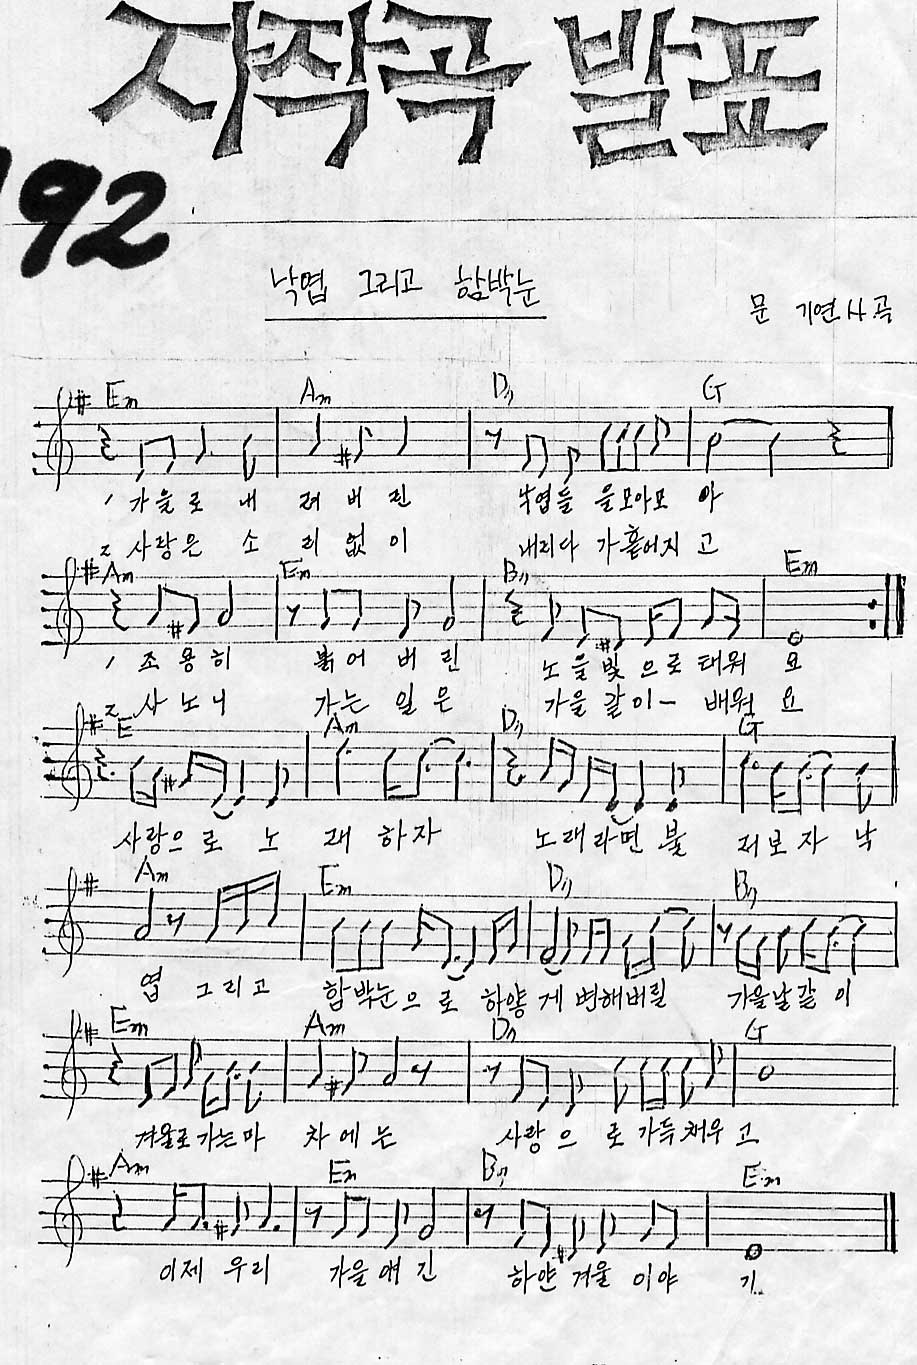 자작곡 발표
92
낙엽 그리고 함박눈
문 기연 사 곡
Em Am D7 G
1 가을로 내 려 버 린 낙엽들 을모아모 아
2 사랑은 소 리 없 이 내리다 가흩어지 고
Am Em B7 Em
1 조 용 히 붉 어 버 린 노 을 빛 으 로 태워 요
2 사 노 니 가는 일 은 가을 같이ㅡ 배워 요
E Am D7 G
사랑으 로 노 래 하 자 노래라면 불 러보 자 낙
Am Em D7 B7
엽 그리고 함박눈으 로 하얗 게 변해버릴 가을날같 이
Em Am D7 G
겨울로가는마 차 에 는 사랑 으 로 가득채우 고
Am Em B7 Em
이제 우리 가을 얘 긴 하얀 겨울 이야 기